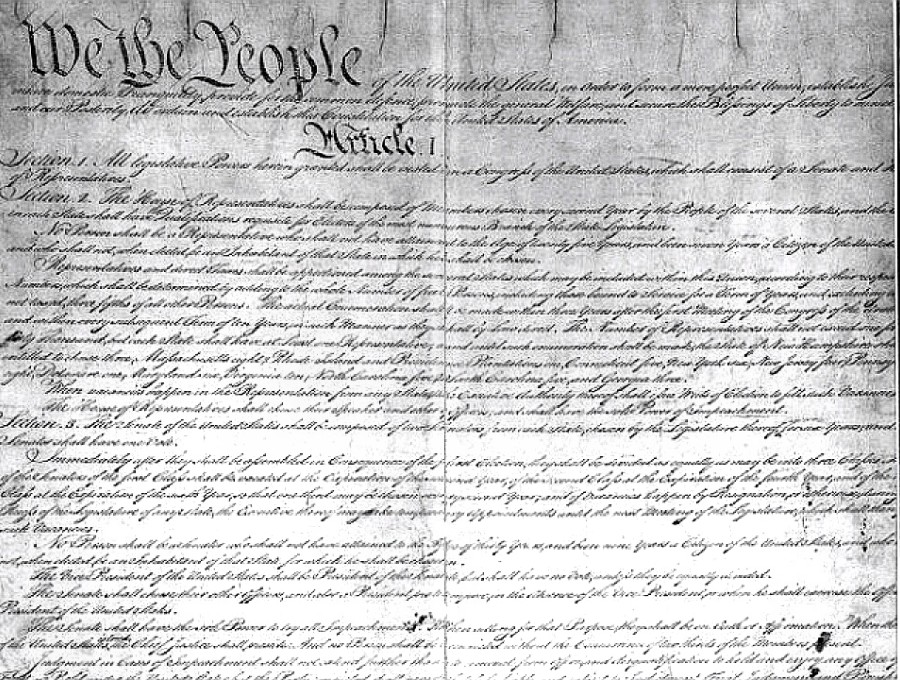 We the People of the United States, in order to form a more perfect Union, establish
domestic Tranquility, provide for the common defence, promote the general Welfare, and secure the Blessings of Liberty to
and our Posterity, do ordain and establish this Constitution for the United States of America.
Article. I
Section. 1. All legislative Powers herein granted shall be vested in a Congress of the United States, which shall consist of a Senate and
of Representatives.
Section. 2. The House of Representatives shall be composed of Members chosen every second Year by the People of the several States, and the
in each State shall have Qualifications requisite for Electors of the most numerous Branch of the State Legislature.
No Person shall be a Representative who shall not have attained to the Age of twenty five Years, and been seven Years a Citizen of the United
and who shall not, when elected, be an Inhabitant of that State in which he shall be chosen.
Representatives and direct Taxes shall be apportioned among the several States which may be included within this Union, according to their respective
Numbers, which shall be determined by adding to the whole Number of free Persons, including those bound to Service for a Term of Years, and excluding
not taxed, three fifths of all other Persons. The actual Enumeration shall be made within three Years after the first Meeting of the Congress of the United
and within every subsequent Term of ten Years, in such Manner as they shall by Law direct. The Number of Representatives shall not exceed one for
thirty Thousand, but each State shall have at Least one Representative; and until such enumeration shall be made, the State of New Hampshire shall
entitled to chuse three, Massachusetts eight, Rhode Island and Providence Plantations one, Connecticut five, New York six, New Jersey four,
eight, Delaware one, Maryland six, Virginia ten, North Carolina five, South Carolina five, and Georgia three.
When vacancies happen in the Representation from any State, the Executive Authority thereof shall issue Writs of Election to fill such Vacancies.
The House of Representatives shall chuse their Speaker and other Officers; and shall have the sole Power of Impeachment.
Section. 3. The Senate of the United States shall be composed of two Senators from each State, chosen by the Legislature thereof, for six Years; and
Senator shall have one Vote.
Immediately after they shall be assembled in Consequence of the first Election, they shall be divided as equally as may be into three Classes.
of the Senators of the first Class shall be vacated at the Expiration of the second Year, of the second Class at the Expiration of the fourth Year, and of the
Class at the Expiration of the sixth Year, so that one third may be chosen every second Year; and if Vacancies happen by Resignation, or otherwise, during
Recess of the Legislature of any State, the Executive thereof may make temporary Appointments until the next Meeting of the Legislature, which shall then
such Vacancies.
No Person shall be a Senator who shall not have attained to the Age of thirty Years, and been nine Years a Citizen of the United States, and who
not, when elected, be an Inhabitant of that State for which he shall be chosen.
The Vice President of the United States shall be President of the Senate, but shall have no Vote, unless they be equally divided.
The Senate shall chuse their other Officers, and also a President pro tempore, in the Absence of the Vice President, or when he shall exercise the
President of the United States.
The Senate shall have the sole Power to try all Impeachments. When sitting for that Purpose, they shall be on Oath or Affirmation. When the
of the United States, the Chief Justice shall preside: And no Person shall be convicted without the Concurrence of two thirds of the Members present.
Judgment in Cases of Impeachment shall not extend further than to removal from Office, and disqualification to hold and enjoy any Office of